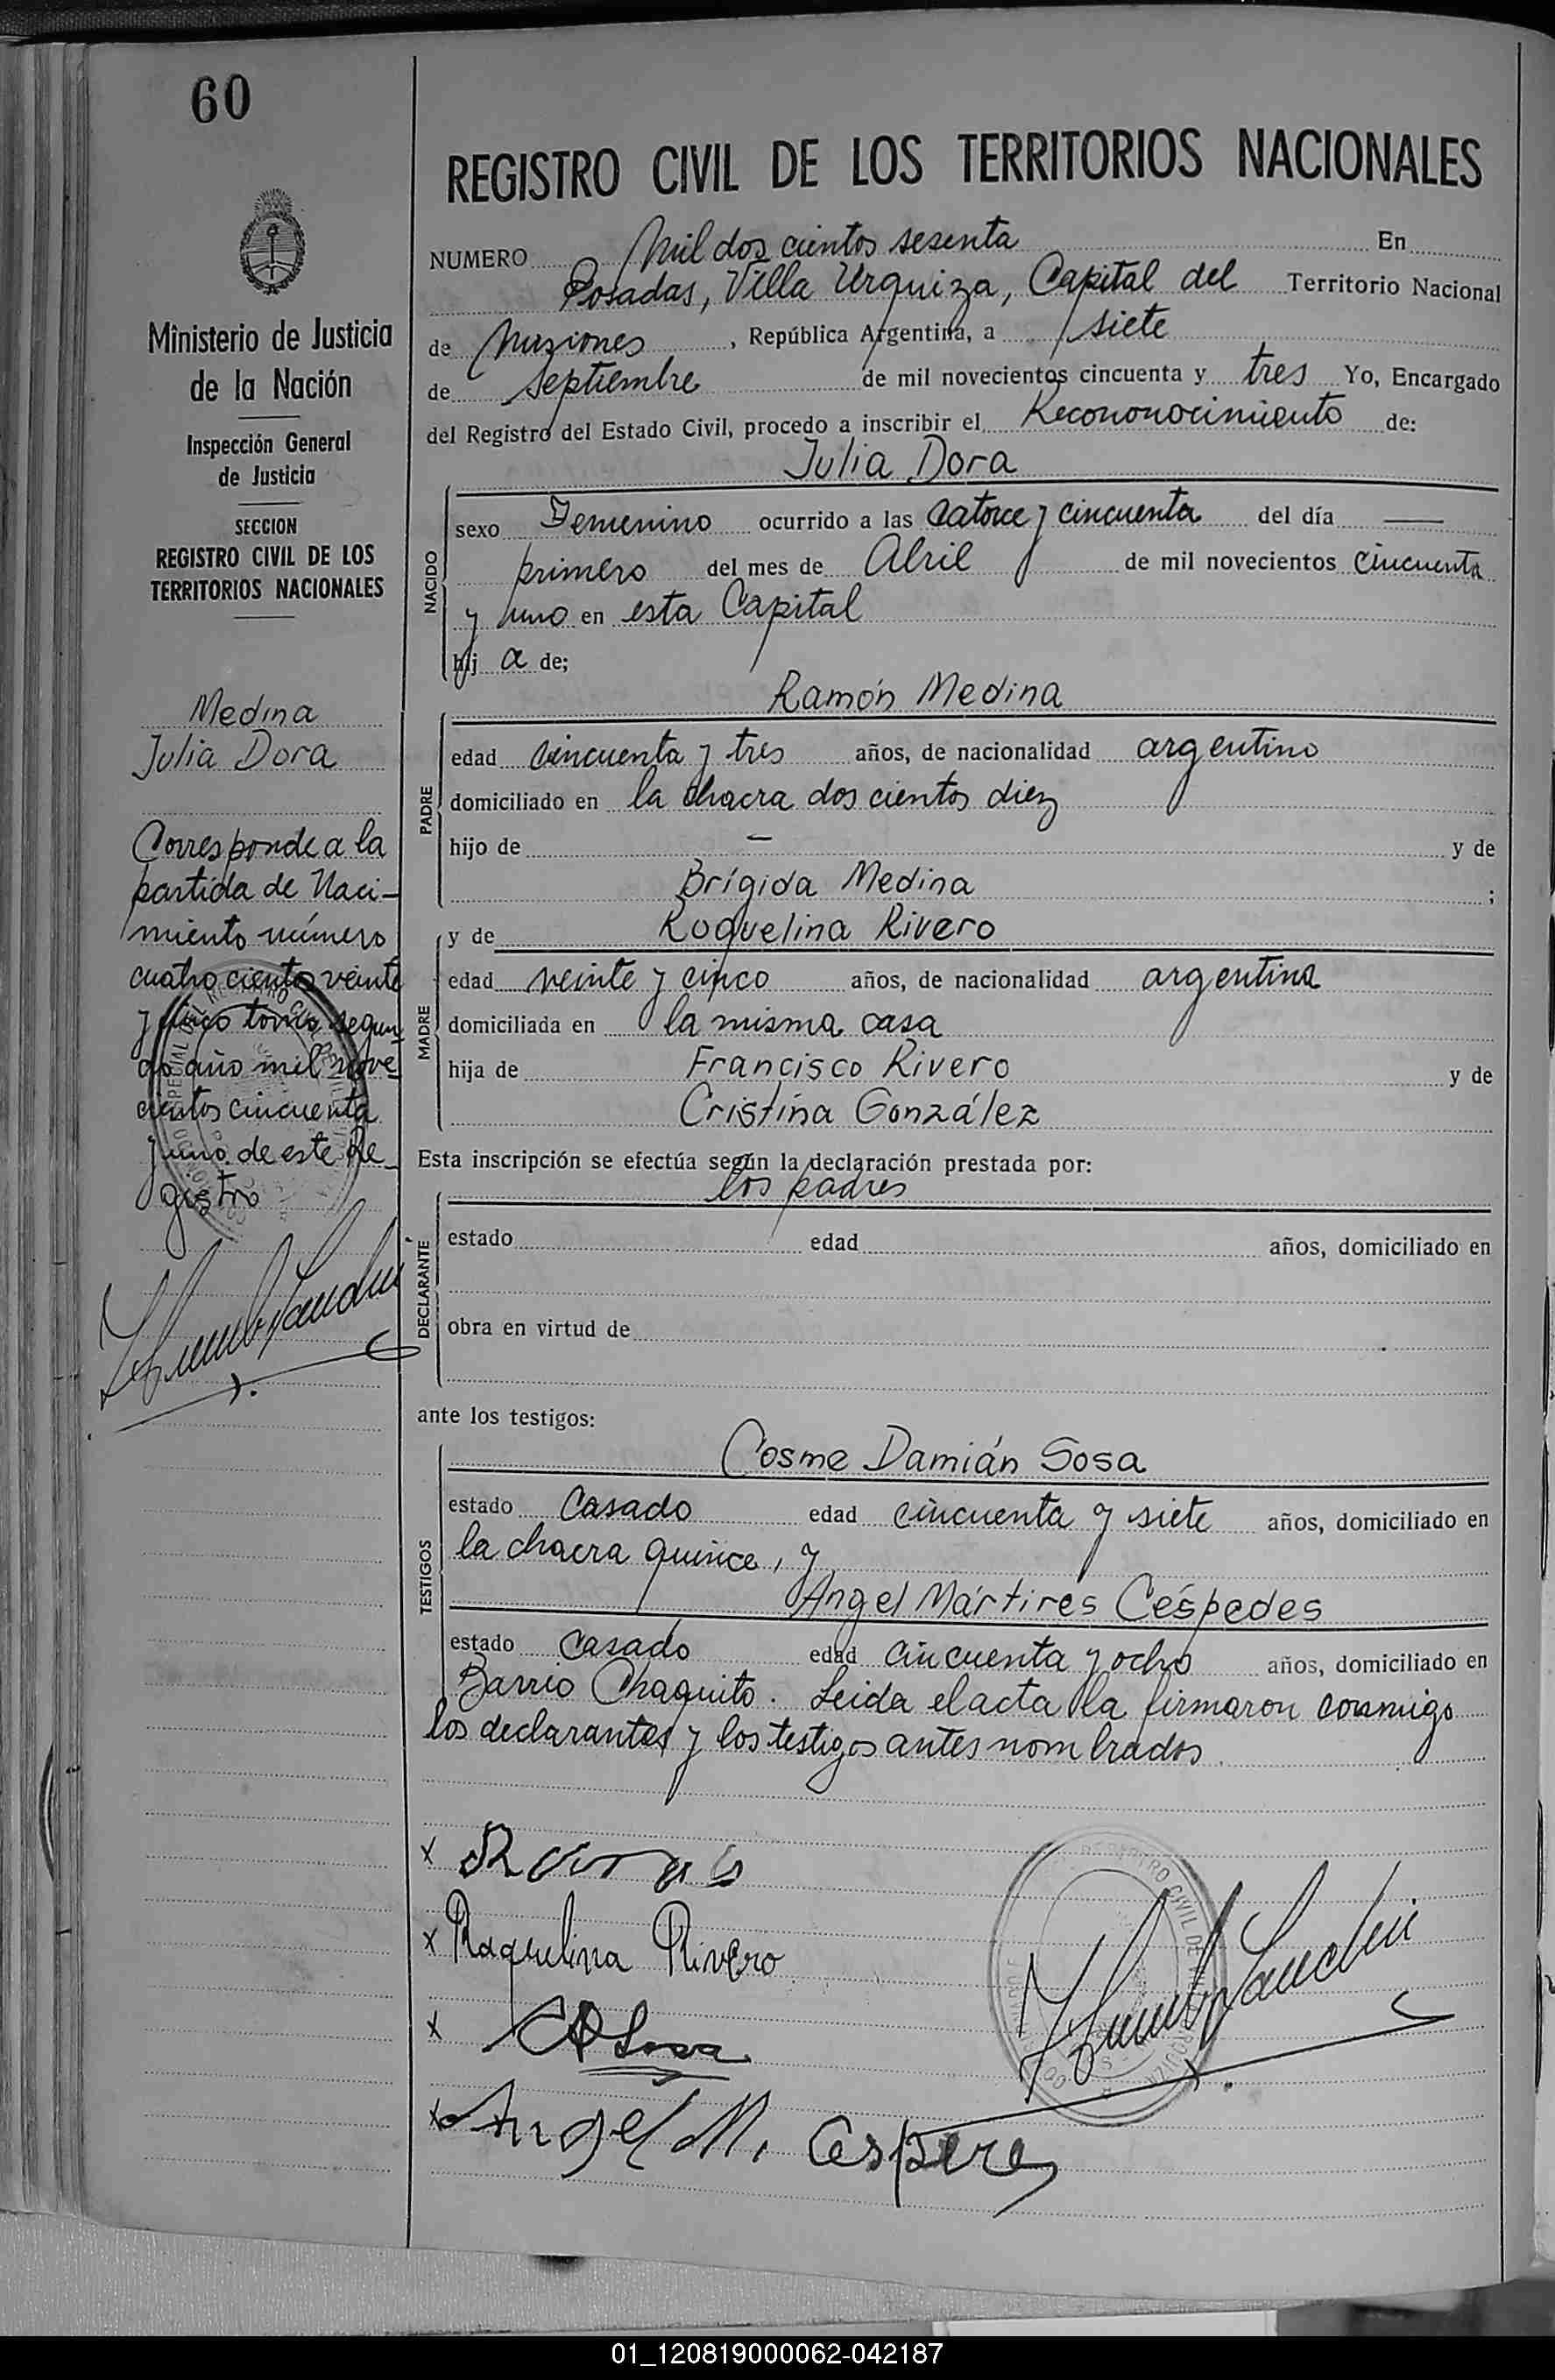 60
REGISTRO CIVIL DE LOS TERRITORIOS NACIONALES
NUMERO Mil dos cientos sesenta En
Posadas, Villa Urquiza, Capital del Territorio Nacional
de Misiones, República Argentina, a siete
de septiembre de mil novecientos cincuenta y tres Yo, Encargado
del Registro del Estado Civil, procedo a inscribir el Recononocimiento de:
Julia Dora
NACIDO
sexo Femenino ocurrido a las catorce y cincuenta del día —
primero del mes de Abril de mil novecientos cincuenta
y uno en esta Capital
hij a de;
Ramón Medina
PADRE
edad cincuenta y tres años, de nacionalidad argentino
domiciliado en la chacra dos cientos diez
hijo de — y de
Brígida Medina ;
y de Roquelina Rivero
MADRE
edad veinte y cinco años, de nacionalidad argentina
domiciliada en la misma casa
hija de Francisco Rivero y de
Cristina González
Esta inscripción se efectúa según la declaración prestada por:
los padres
DECLARANTE
estado edad años, domiciliado en
obra en virtud de
ante los testigos:
Cosme Damián Sosa
TESTIGOS
estado casado edad cincuenta y siete años, domiciliado en
la chacra quince, y
Angel Mártires Céspedes
estado casado edad cincuenta y ocho años, domiciliado en
Barrio Chaquito. Leida el acta la firmaron conmigo
los declarantes y los testigos antes nombrados
x
x Raquelina Rivero
x CD Sosa
x Angel M. Cespede
Ministerio de Justicia
de la Nación
Inspección General
de Justicia
SECCION
REGISTRO CIVIL DE LOS
TERRITORIOS NACIONALES
Medina
Julia Dora
Corresponde a la
partida de Naci-
miento número
cuatro cientos veinte
y cinco tomo segun
do año mil nove-
cientos cincuenta
y uno de este Re-
gistro
01_120819000062-042187